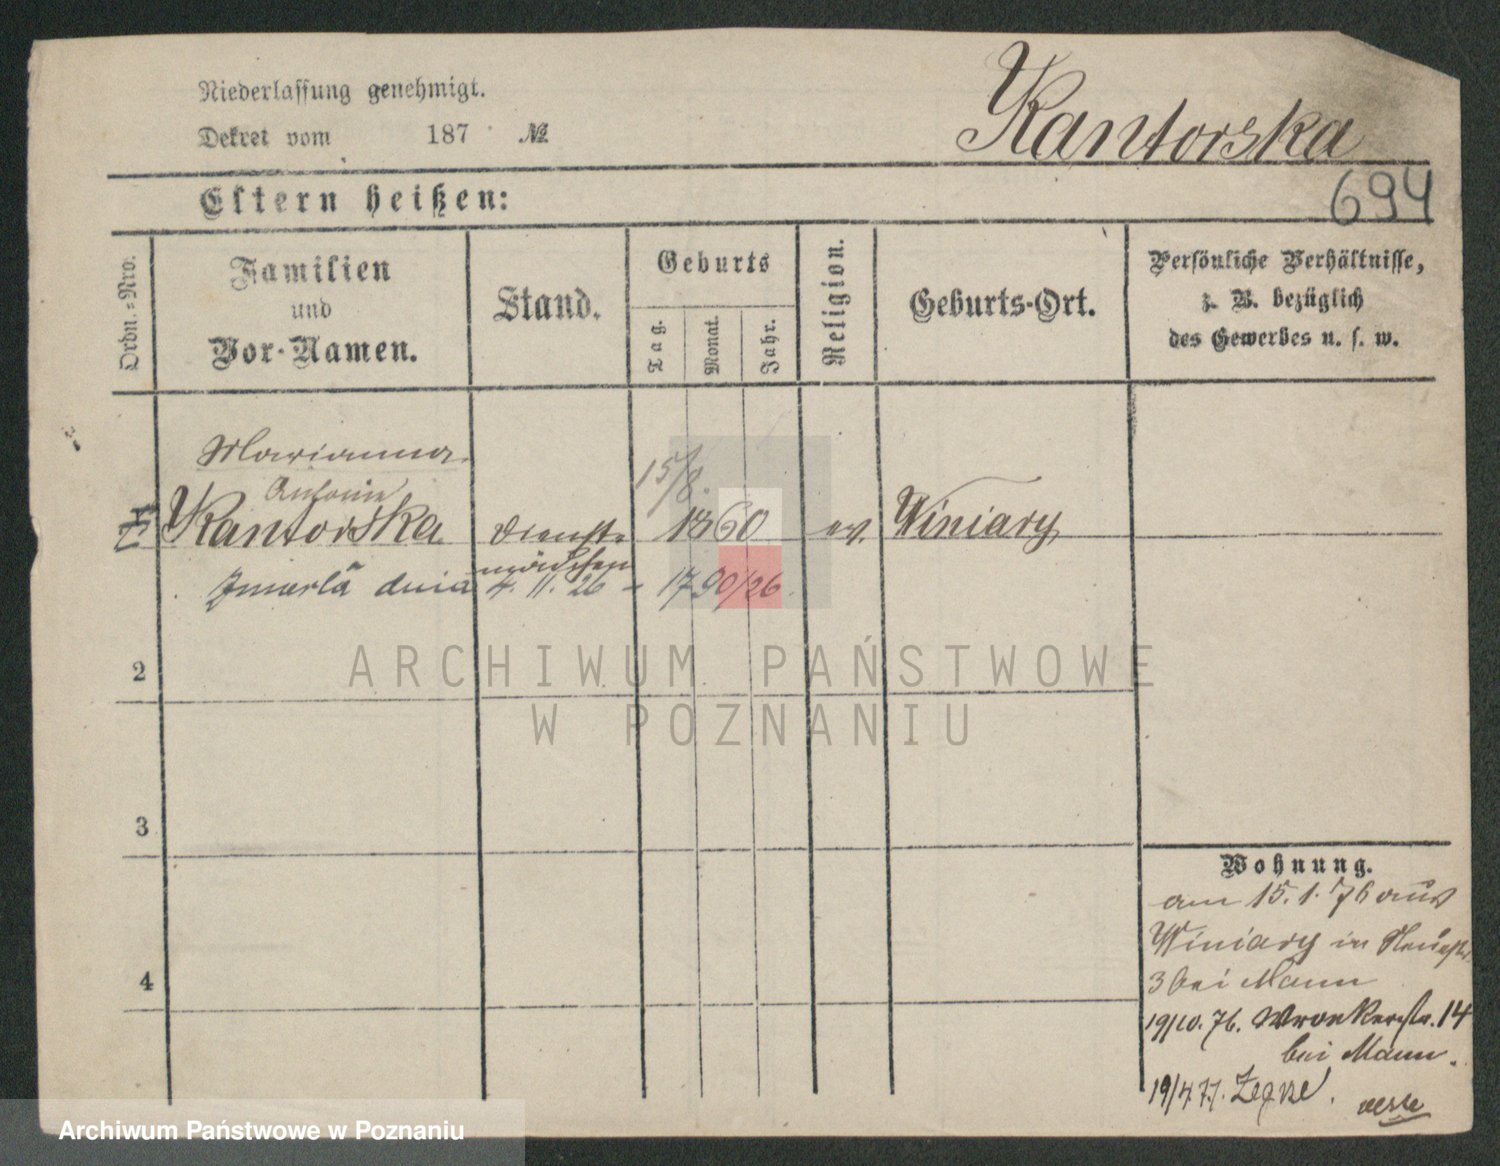 Niederlassung genehmigt.
Dekret vom 187 №
Kantorska
694
Eltern heißen:
Ordn.-Nro.
Familien
und
Vor-Namen.
Stand.
Geburts
Tag.
Monat.
Jahr.
Religion.
Geburts-Ort.
Persönliche Verhältnisse,
z. B. bezüglich
des Gewerbes u. s. w.
Marianna
Antonie
15/8.
Kantorska Dienst- 1860 ev. Winiary
mädchen
Zmarła dnia 4. 11. 26 - 1790/26.
2
3
4
Wohnung.
am 15.1.76 aus
Winiary in Neuestr.
3 bei Mann
19/10. 76. Wronkerstr. 14
bei Mann.
19/4 77. Zegrze.
ARCHIWUM PAŃSTWOWE
W POZNANIU
Archiwum Państwowe w Poznaniu